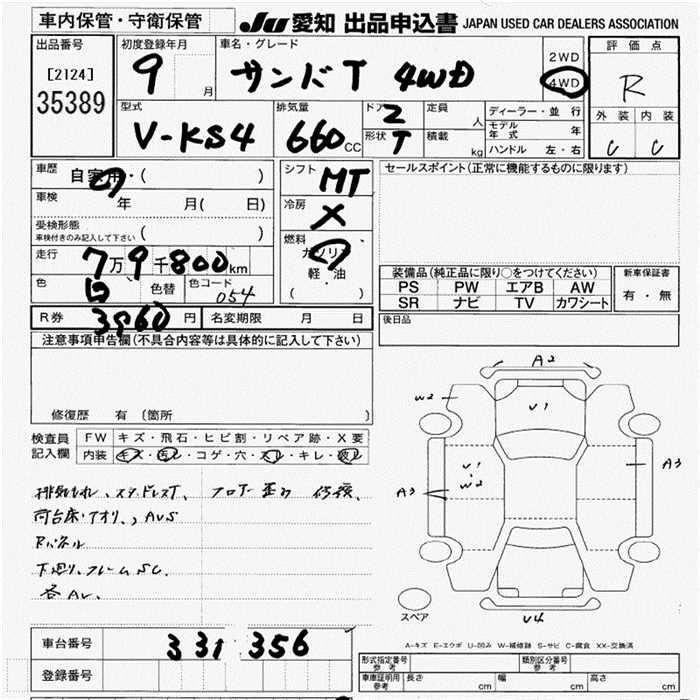 車内保管・守衛保管
JU 愛知 出品申込書 JAPAN USED CAR DEALERS ASSOCIATION
出品番号
[2124]
35389
初度登録年月
9 月
車名・グレード
サンバT 4WD
2WD
4WD
評価点
R
外装 内装
C C
型式
V-KS4
排気量
660 CC
ドア
2
形状
T
定員
人
積載
kg
ディーラー・並行
モデル年式 年
ハンドル 左・右
車歴
自家用・( )
車検
年 月( 日)
受検形態
車検付きのみ記入して下さい ( )
走行
7万9千800km
色
白
色替
色コード
054
R券 3960円
名変期限 月 日
シフト
MT
冷房
X
燃料
ガソリン
軽・油
( )
セールスポイント(正常に機能するものに限ります)
装備品(純正品に限り○をつけてください)
PS PW エアB AW
SR ナビ TV カワシート
新車保証書
有・無
後日品
注意事項申告欄(不具合内容等は具体的に記入して下さい)
修復歴 有 〔箇所 〕
検査員記入欄
FW キズ・飛石・ヒビ割・リペア跡・X要
内装 キズ・汚レ・コゲ・穴・スレ・キレ・破レ
排気もれ、スタッドレスT、フロアー歪み 修復、
荷台床・アオリ、AUS
Rパネル
下廻り、フレームSC.
各AU.
A2
W2
U1
U1
W2
A3
A3
U4
スペア
A-キズ E-エクボ U-凹み W-補修跡 S-サビ C-腐食 XX-交換済
車台番号 331356
登録番号
形式指定番号 参考
類別区分番号 参考
車庫証明用 参考
長さ cm
幅 cm
高さ cm